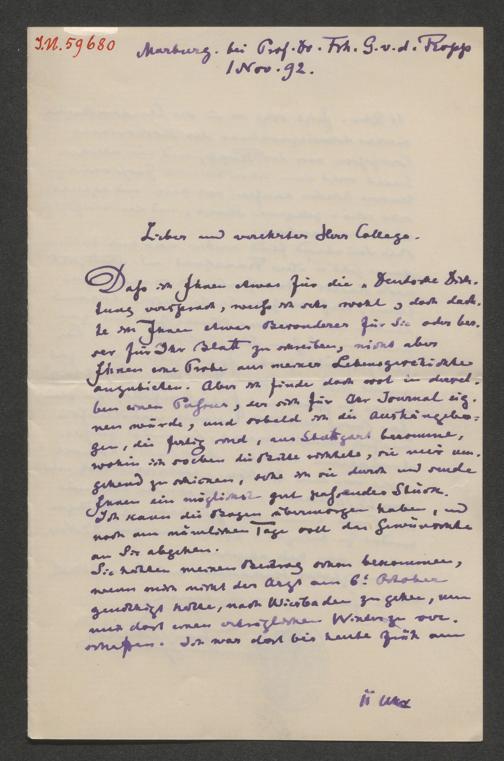 I.N. 59680
Marburg. bei Prof. Dr. Frh. G. v. d. Ropp
1 Nov. 92.
Lieber und verehrter Herr College.
Daß ich Ihnen etwas für die „Deutsche Dich-
tung versprach, weiß ich sehr wohl, doch dach-
te ich Ihnen etwas Besonderes für Sie oder bes-
ser für Ihr Blatt zu schreiben, nicht aber
Ihnen eine Probe aus meiner Lebensgeschichte
anzubieten. Aber ich finde doch wol in dersel-
ben einen Passus, der sich für Ihr Journal eig-
nen würde, und sobald ich die Aushängebo-
gen, die fertig sind, aus Stuttgart bekomme,
wohin ich soeben die Bitte richtete, sie mir um-
gehend zu schicken, sehe ich sie durch und sende
Ihnen ein möglichst gut passendes Stück.
Ich kann die Bogen übermorgen haben, und
noch am nämlichen Tage soll das Gewünschte
an Sie abgehen.
Sie hätten meinen Beitrag schon bekommen,
wenn mich nicht der Arzt am 6. October
genöthigt hätte, nach Wiesbaden zu gehen, um
mir dort einen erträglichen Winter zu ver-
schaffen. Ich war dort bis heute früh um
11 Uhr